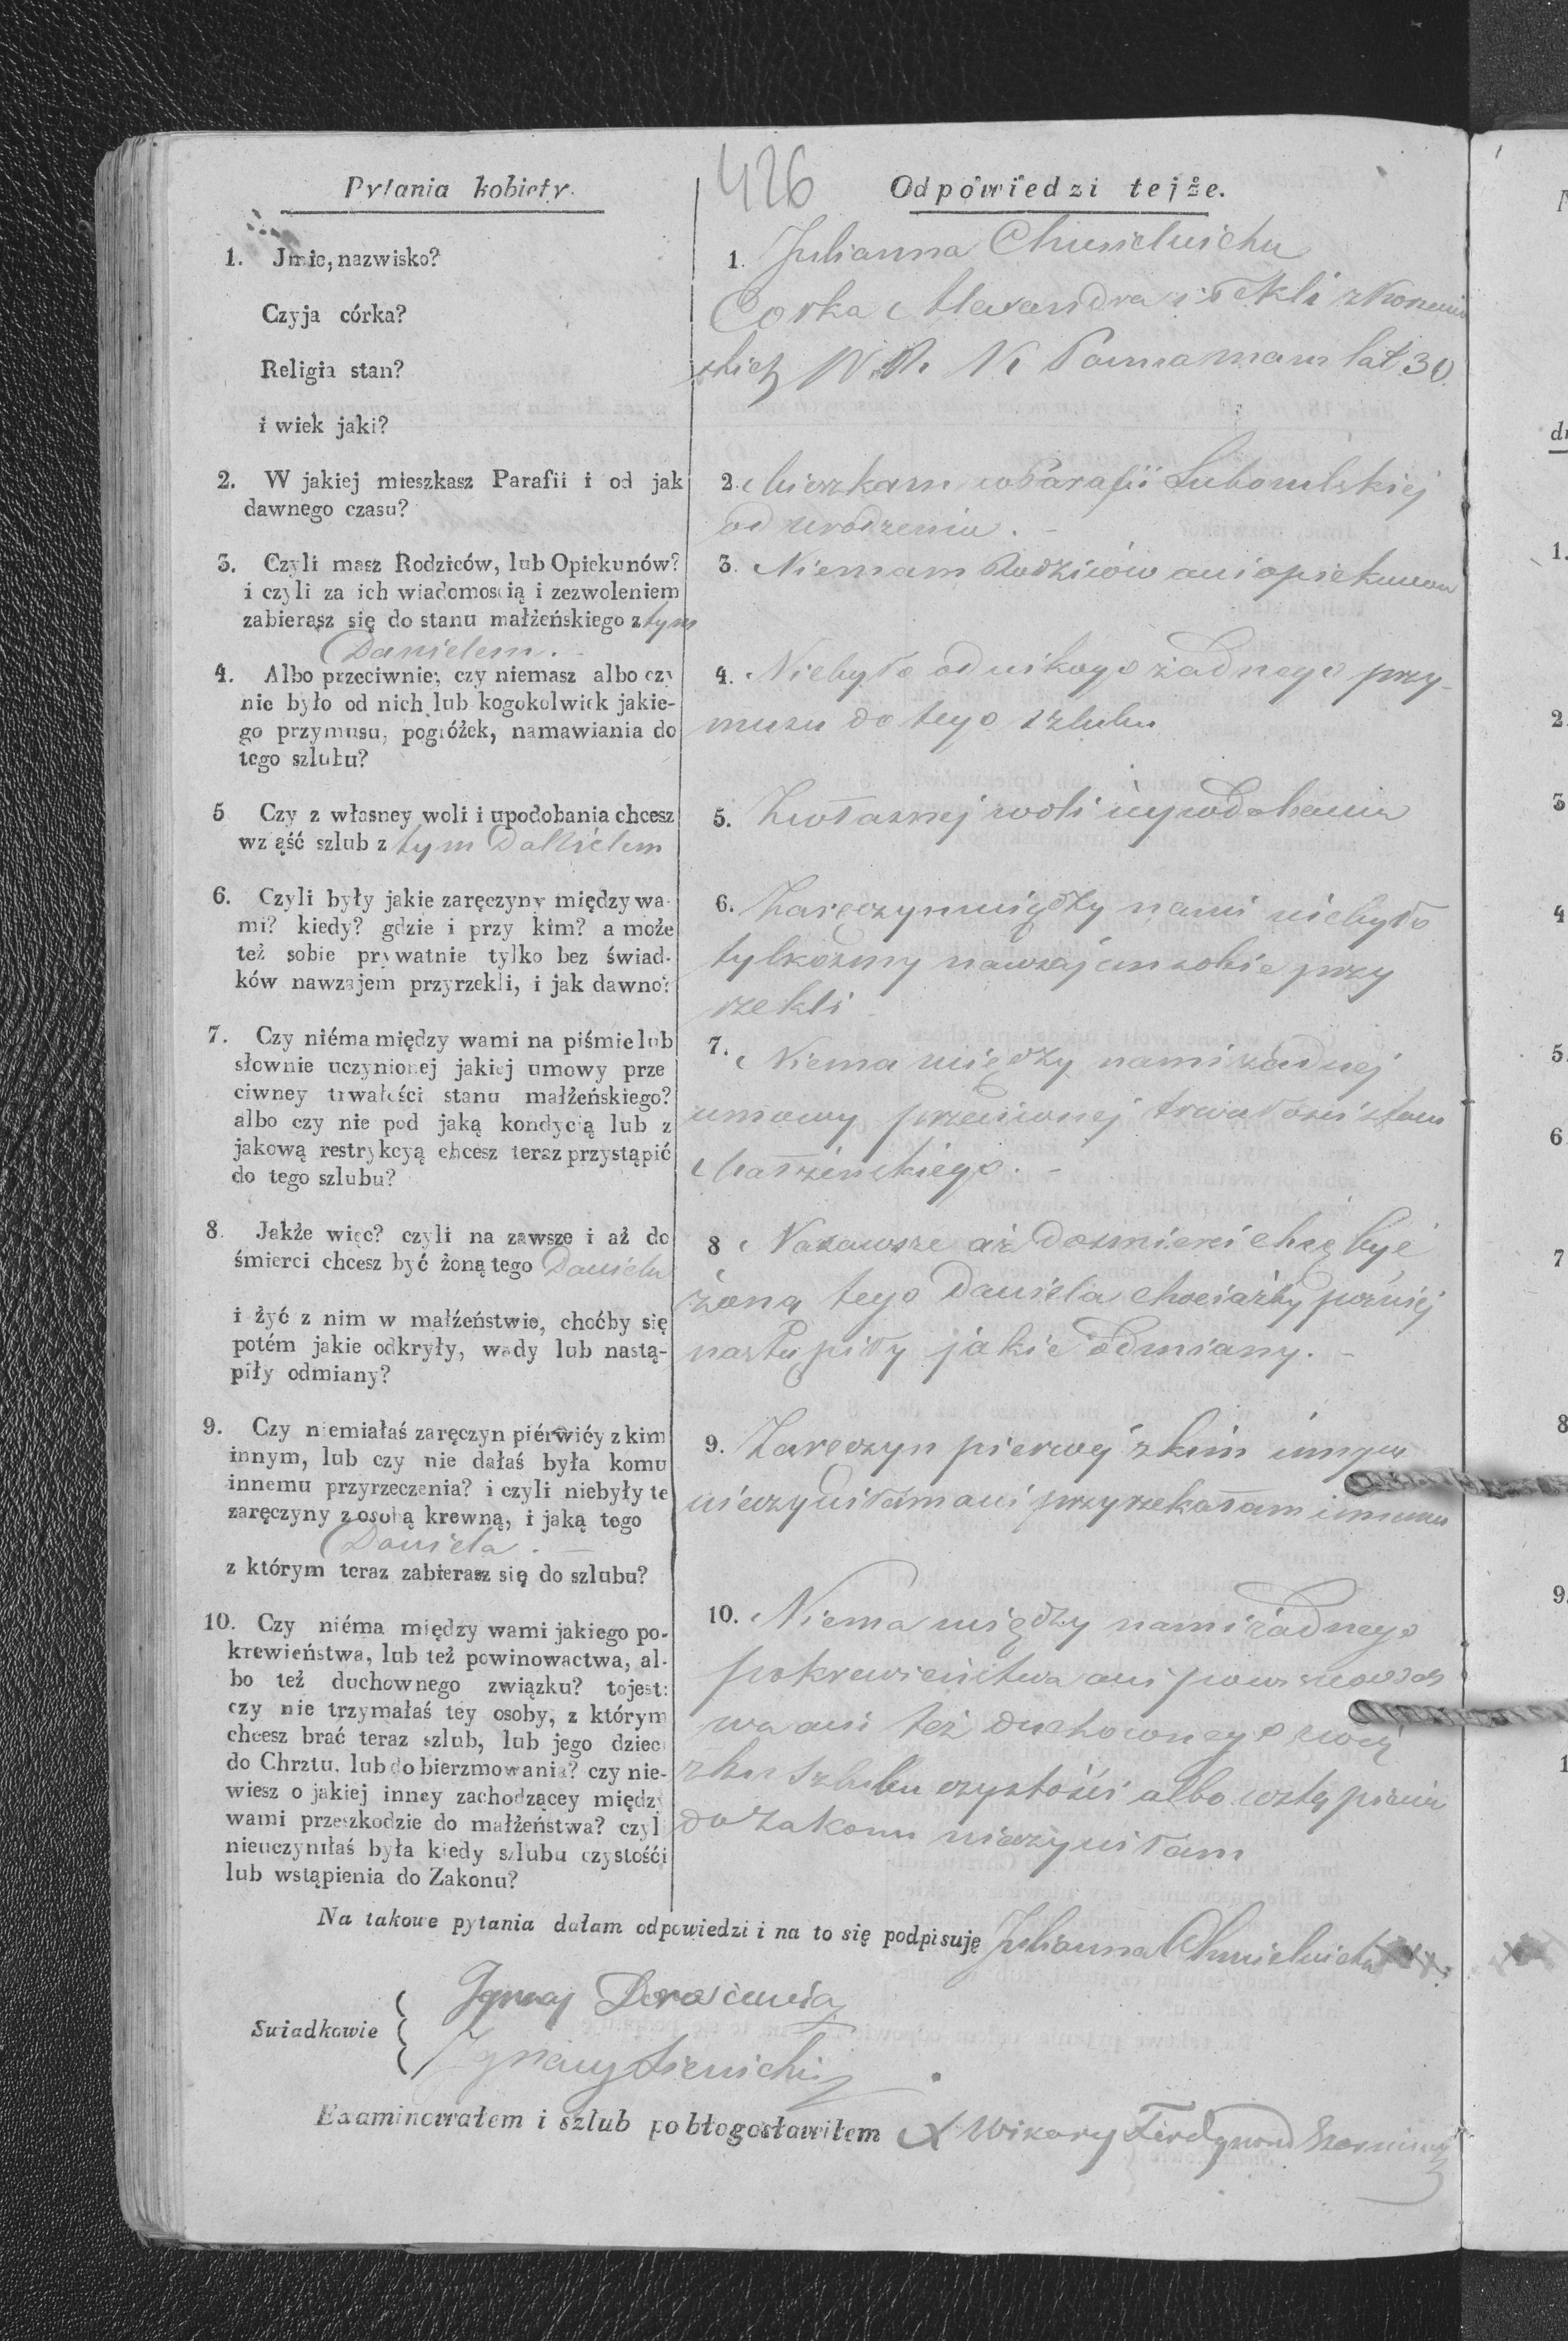 426
Pytania kobiety.
1. Jmie, nazwisko?
Czyja córka?
Religia stan?
i wiek jaki?
2. W jakiej mieszkasz Parafii i od jak
dawnego czasu?
3. Czyli masz Rodziców, lub Opiekunów?
i czyli za ich wiadomością i zezwoleniem
zabierasz się do stanu małżeńskiego z tym
Danielem.
4. Albo przeciwnie; czy niemasz albo czy
nie było od nich lub kogokolwiek jakie-
go przymusu, pogróżek, namawiania do
tego szlubu?
5 Czy z własney woli i upodobania chcesz
wziąść szlub z tym Danielem
6. Czyli były jakie zaręczyny między wa-
mi? kiedy? gdzie i przy kim? a może
też sobie prywatnie tylko bez świad-
ków nawzajem przyrzekli, i jak dawno?
7. Czy niéma między wami na piśmie lub
słownie uczynionej jakiej umowy prze
ciwney trwałości stanu małżeńskiego?
albo czy nie pod jaką kondycią lub z
jakową restrykcyą chcesz teraz przystąpić
do tego szlubu?
8. Jakże więc? czyli na zawsze i aż do
śmierci chcesz być żoną tego Daniela
i żyć z nim w małżeństwie, choćby się
potém jakie odkryły, wady lub nastą-
piły odmiany?
9. Czy niemiałaś zaręczyn piérwiéy z kim
innym, lub czy nie dałaś była komu
innemu przyrzeczenia? i czyli niebyły te
zaręczyny z osobą krewną, i jaką tego
Daniela.
z którym teraz zabierasz się do szlubu?
10. Czy niéma między wami jakiego po-
krewieństwa, lub też powinowactwa, al-
bo też duchownego związku? tojest:
czy nie trzymałaś tey osoby, z którym
chcesz brać teraz szlub, lub jego dzieci
do Chrztu, lub do bierzmowania? czy nie-
wiesz o jakiej inney zachodzącey między
wami przeszkodzie do małżeństwa? czyli
nieuczyniłaś była kiedy szlubu czystości
lub wstąpienia do Zakonu?
Odpowiedzi tejże.
1. Julianna
Corka Alexandra i Tekli z
skich Panna mam lat 30.
2. Mieszkam w Parafii Lubomlskiej
od urodzenia.
3. Niemam Rodziców ani opiekunow
4. Niebyło od nikogo żadnego przy-
musu do tego szlubu
5. Zwłasnej woli i upodobania
6. Zaręczyn między nami niebyło
tylkośmy nawzajem sobie przy
rzekli
7. Niema między nami żadnej
umowy przeciwnej trwałości stanu
Małżeńskiego.
8 Nazawsze aż dośmierci chcę być
żoną tego Daniela chociażby później
nastąpiły jakie odmiany.
9. Zaręczyn pierwej z kim innym
nieczyniłam ani przyrzekałam innemu
10. Niema między nami żadnego
pokrewieństwa ani powinowact
wa ani też duchownego zwią
zku szlubu czystości albo wstąpienia
do Zakonu nieczyniłam
Na takowe pytania dałam odpowiedzi i na to się podpisuję Julianna
Swiadkowie
Ignacy
Ignacy
Examinowałem i szlub pobłogosławiłem X Wikary Ferdynand